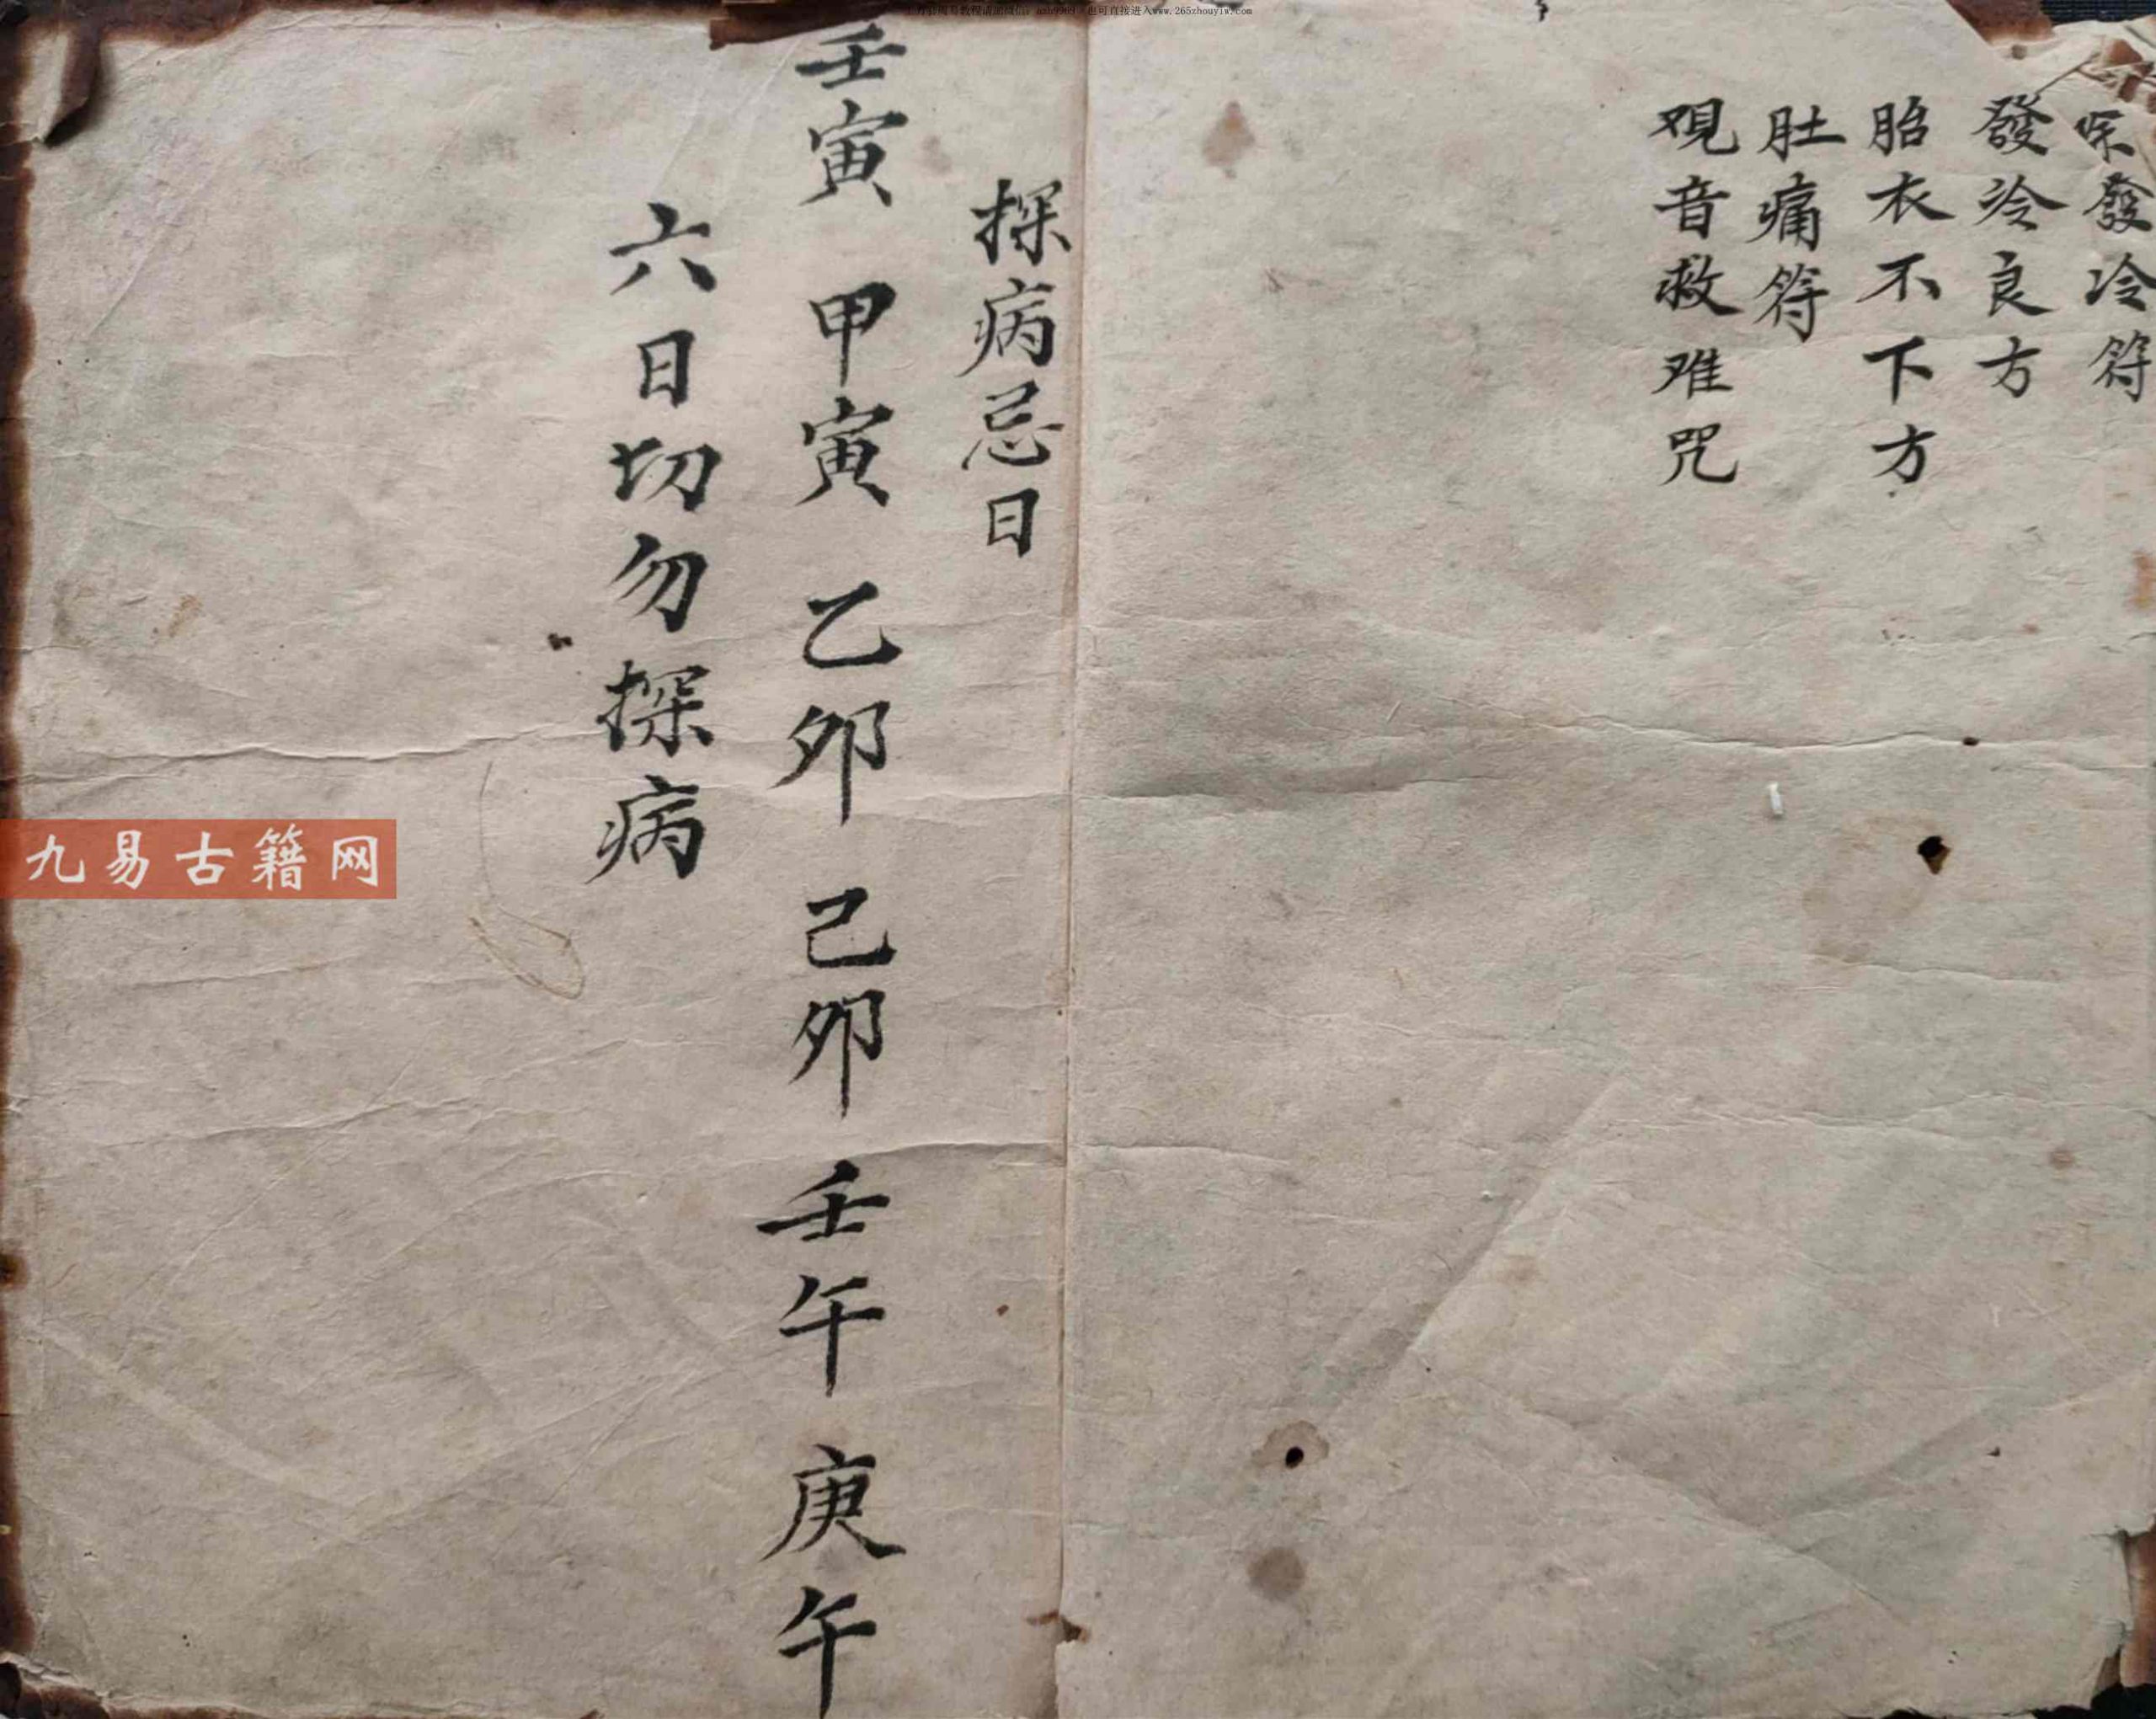 發冷符
發冷良方
胎衣不下方
肚痛符
观音救难咒
探病忌日
壬寅 甲寅 乙卯 己卯 壬午 庚午
六日切勿探病
九易古籍网
也可直接进入www.265zhouyiw.com